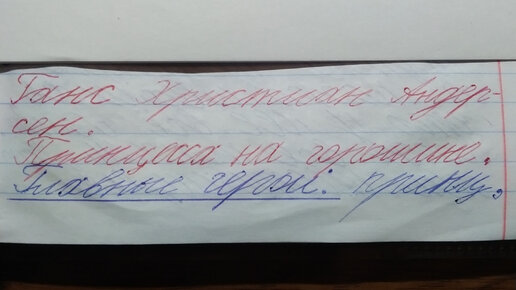 Ганс Христиан Андер-
сен.
Принцесса на горошине.
Главные герои: принц,